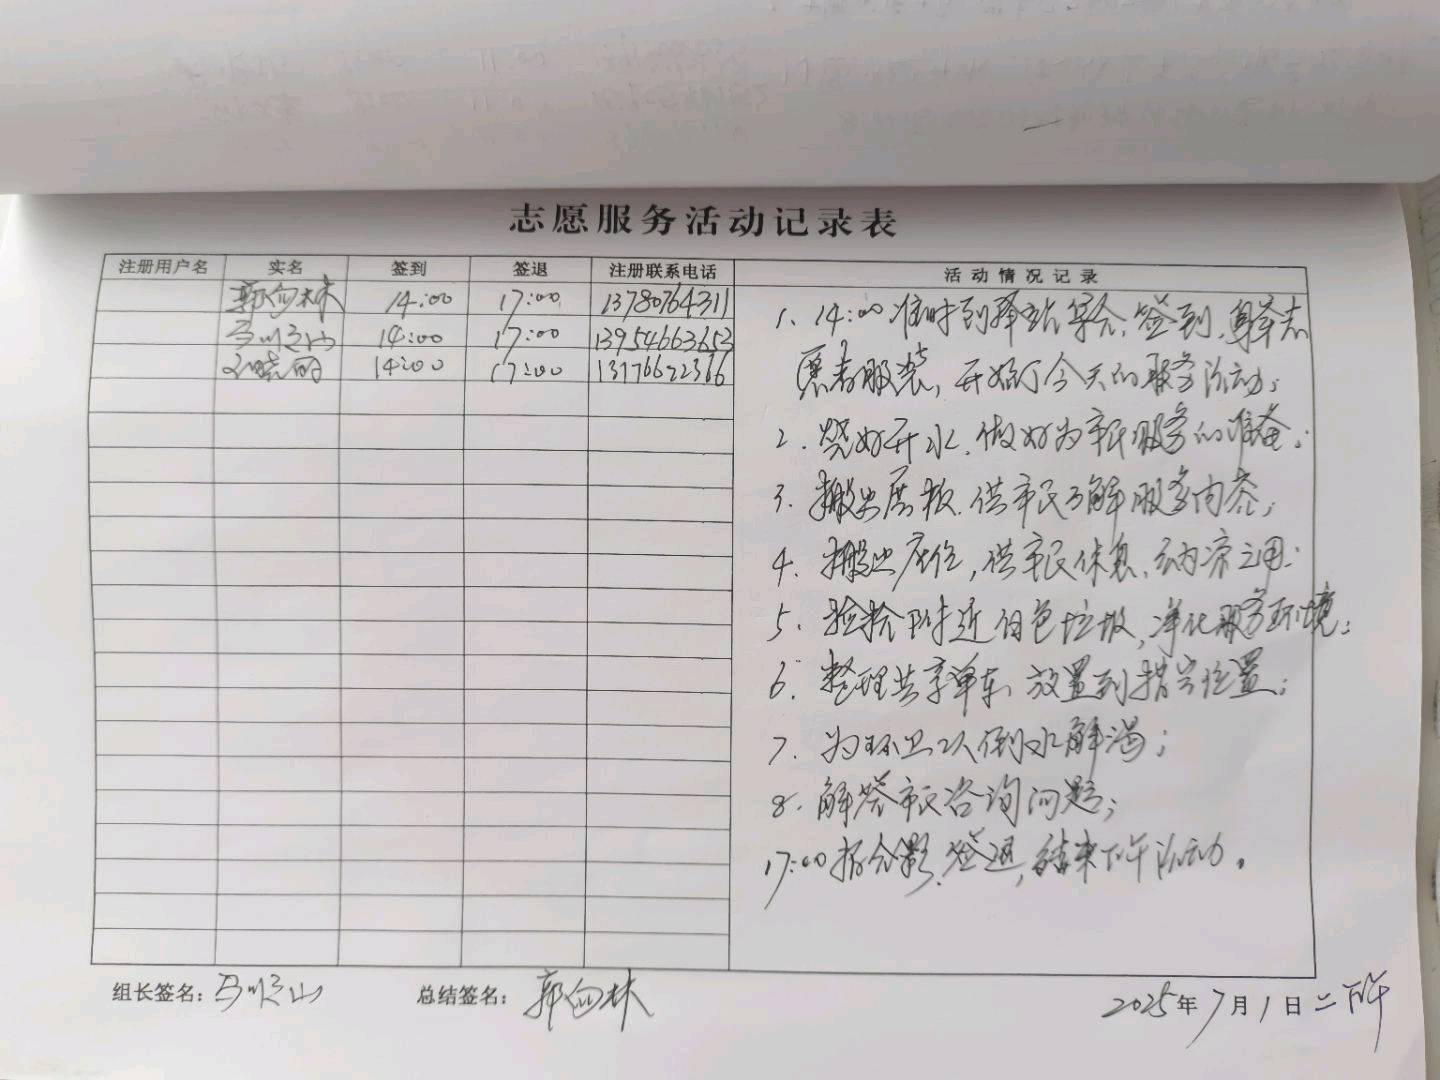 志愿服务活动记录表
注册用户名 实名 签到 签退 注册联系电话 活动情况记录
郭向林 14:00 17:00 13780764311
马顺山 14:00 17:00 13954663653
14:00 17:00 13176622366
1、14:00准时到驿站集合、签到、身穿志
愿者服装，开始了今天的服务活动；
2、烧好开水、做好为市民服务的准备；
3、搬出展板、供市民了解服务内容；
4、搬出座位，供市民休息、纳凉之用；
5、捡拾附近白色垃圾，净化服务环境；
6、整理共享单车、放置到指定位置；
7、为环卫工人倒水解渴；
8、解答市民咨询问题；
17:00拍合影、签退，结束下午活动。
组长签名：马顺山 总结签名：郭向林 2025年7月1日 二 下午